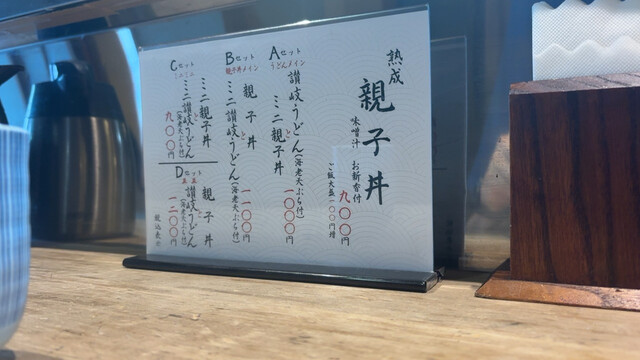 熟成
親子丼
味噌汁 お新香付
九〇〇円
ご飯大盛一〇〇円増
Aセット
うどんメイン
讃岐うどん(海老天ぷら付)
と
ミニ親子丼
一〇〇〇円
Bセット
親子丼メイン
親子丼
と
ミニ讃岐うどん(海老天ぷら付)
一一〇〇円
Cセット
ミニミニ
ミニ親子丼
と
ミニ讃岐うどん
(海老天ぷら付)
九〇〇円
Dセット
親子丼
と
讃岐うどん
(海老天ぷら付)
一二〇〇円